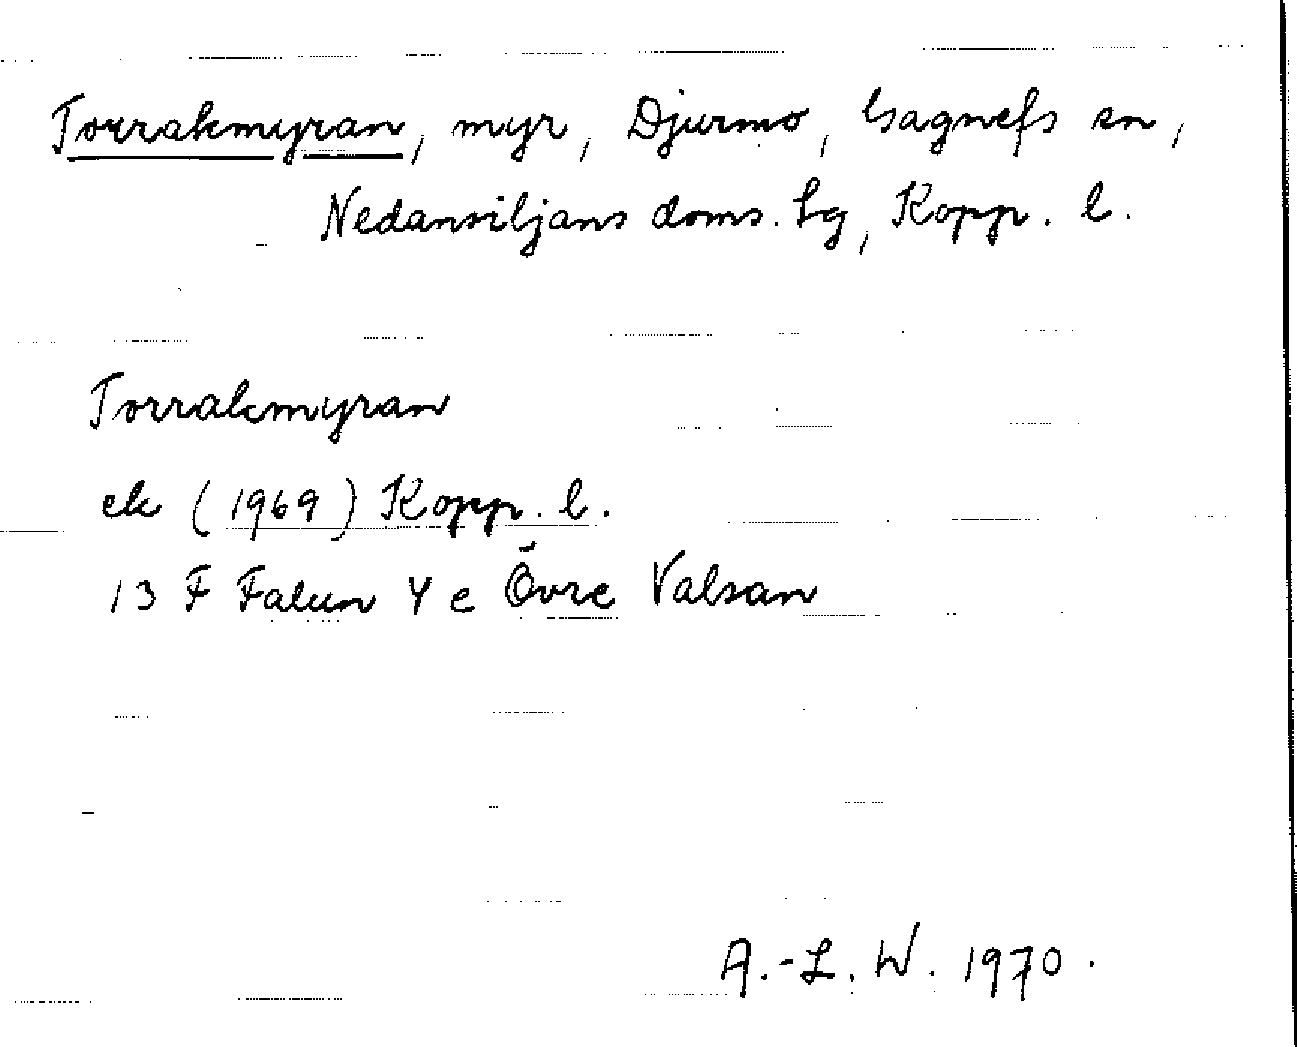 Torrakmyran, myr, Djurmo, Gagnefs sn,
Nedansiljans doms. lg, Kopp. l.
Torrakmyran
ek (1969) Kopp. l.
13 F Falun 4 e Övre Valsan
A.-L. W. 1970.